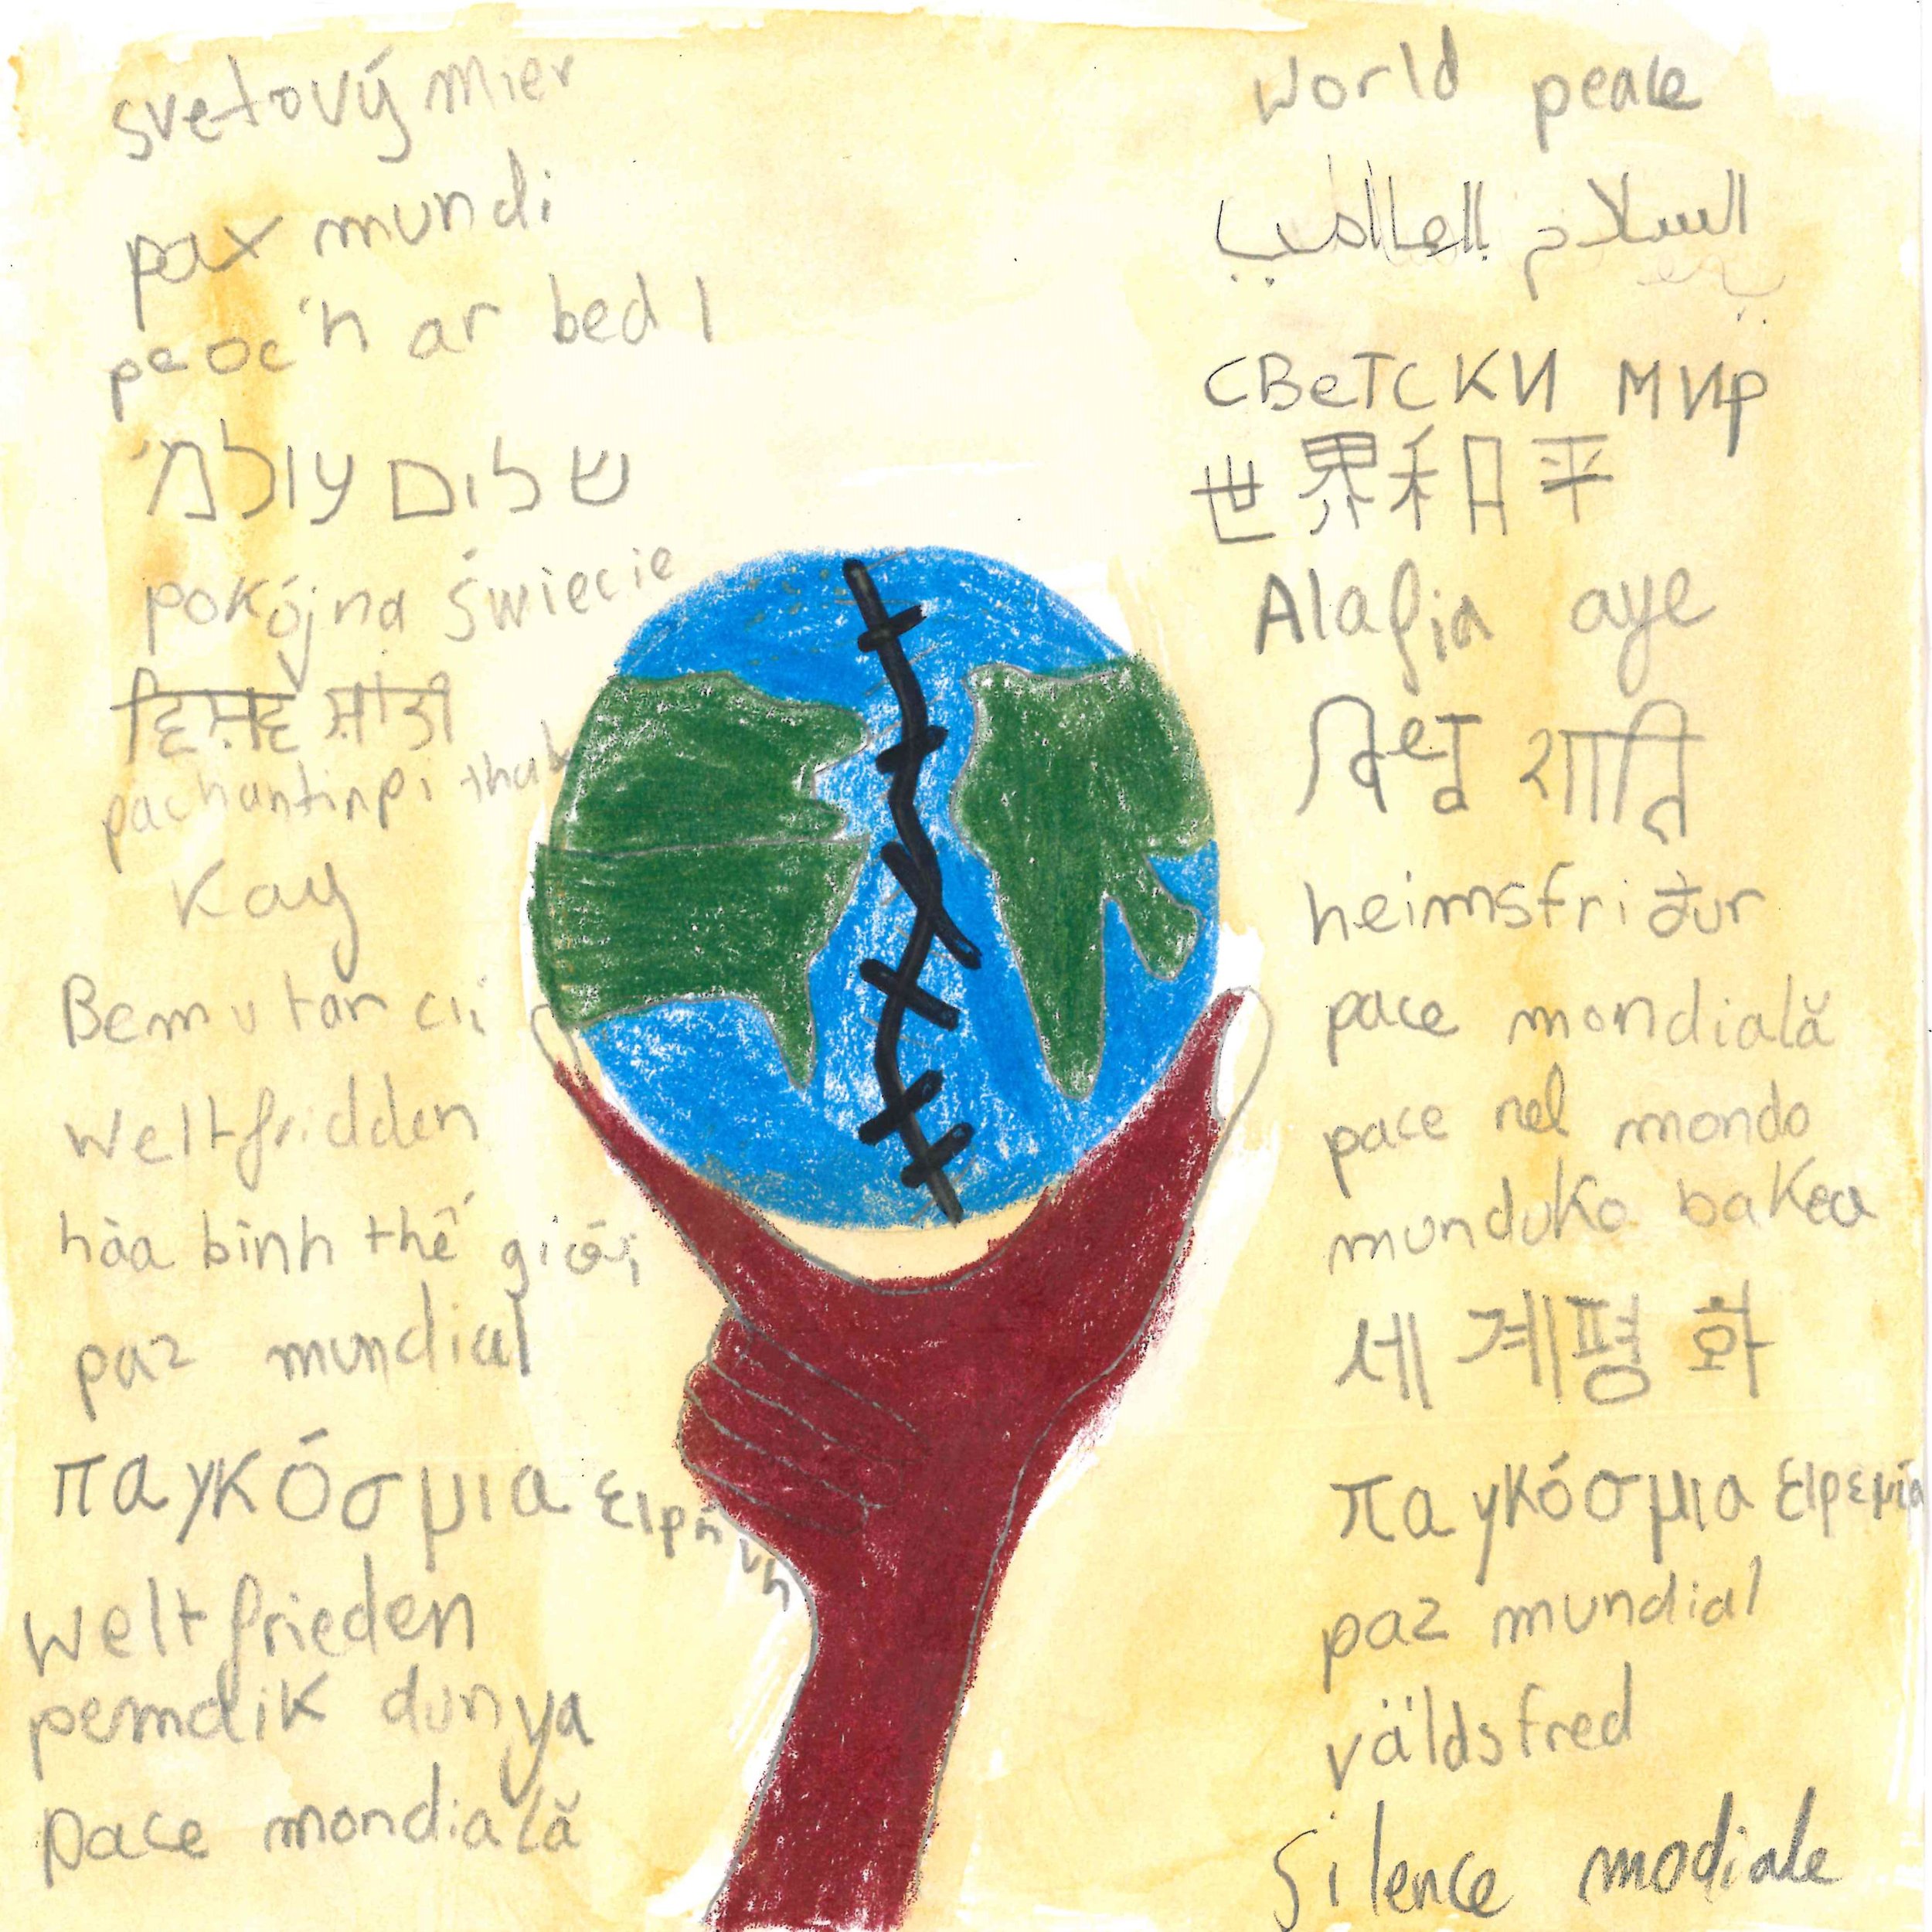 svetový mier
pax mundi
peoc'h ar bed l
שלום עולמ'
pokój na świecie
pachantinpi thak
Kay
Bem u tar cii
Weltfridden
hòa bình thế giới
paz mundial
παγκόσμια ειρήνη
weltfrieden
pemdik dunya
pace mondială
world peace
السلام العالمي
светски мир
世界和平
Alafia aye
heimsfriđur
pace mondială
pace nel mondo
munduko bakea
세계평화
παγκόσμια ειρεμία
paz mundial
väldsfred
Silence modiale